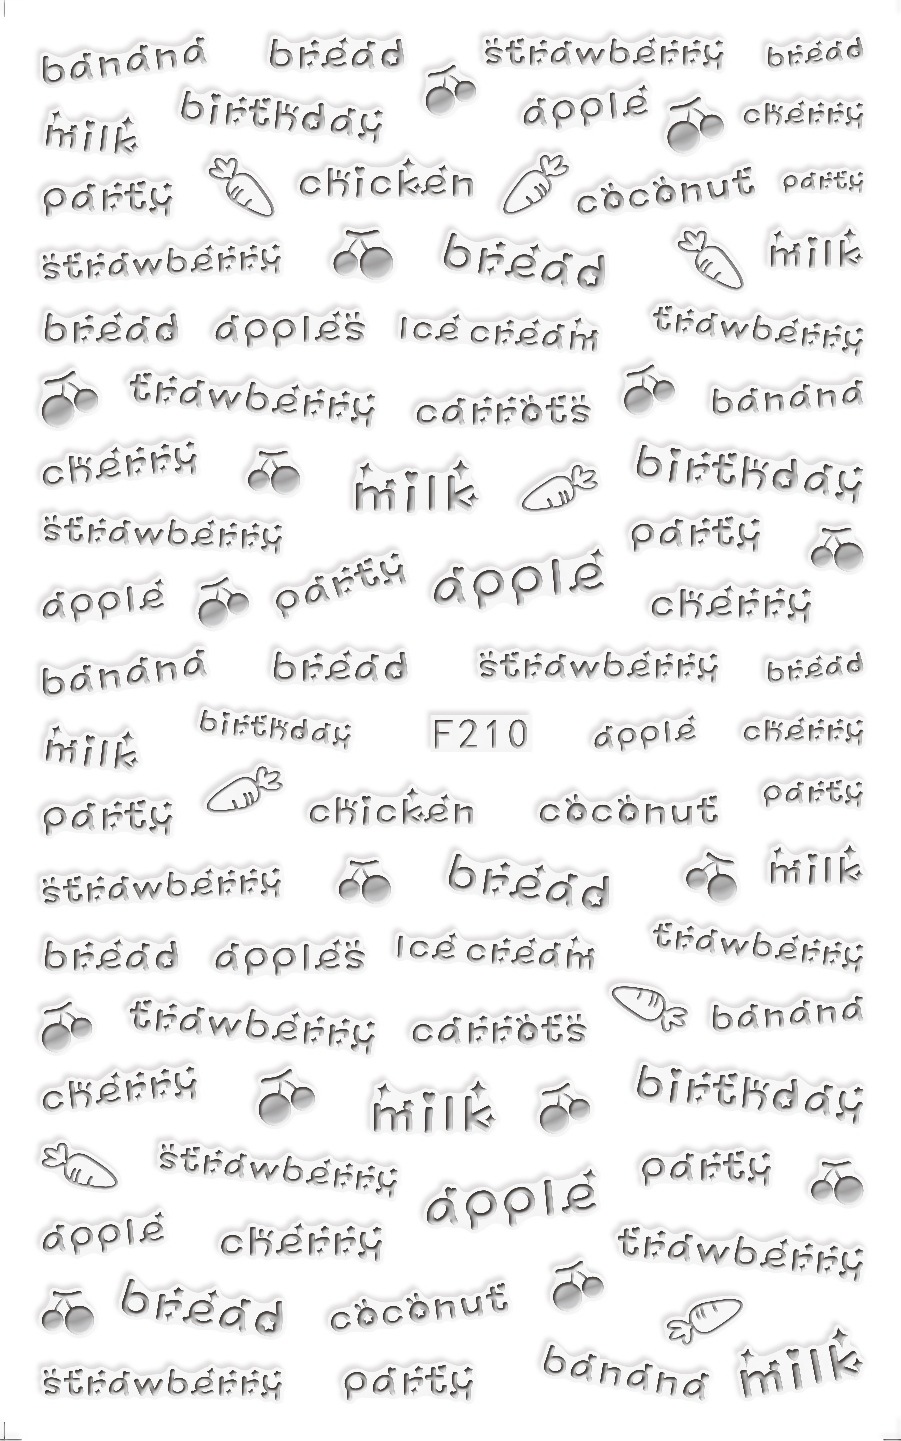 banana bread strawberry bread
milk birthday apple cherry
party chicken coconut party
strawberry bread milk
bread apples Ice cream trawberry
trawberry carrots banana
cherry milk birthday
strawberry party
apple party apple cherry
banana bread strawberry bread
milk birthday F210 apple cherry
party chicken coconut party
strawberry bread milk
bread apples Ice cream trawberry
trawberry carrots banana
cherry milk birthday
strawberry apple party
apple cherry trawberry
bread coconut
strawberry party banana milk